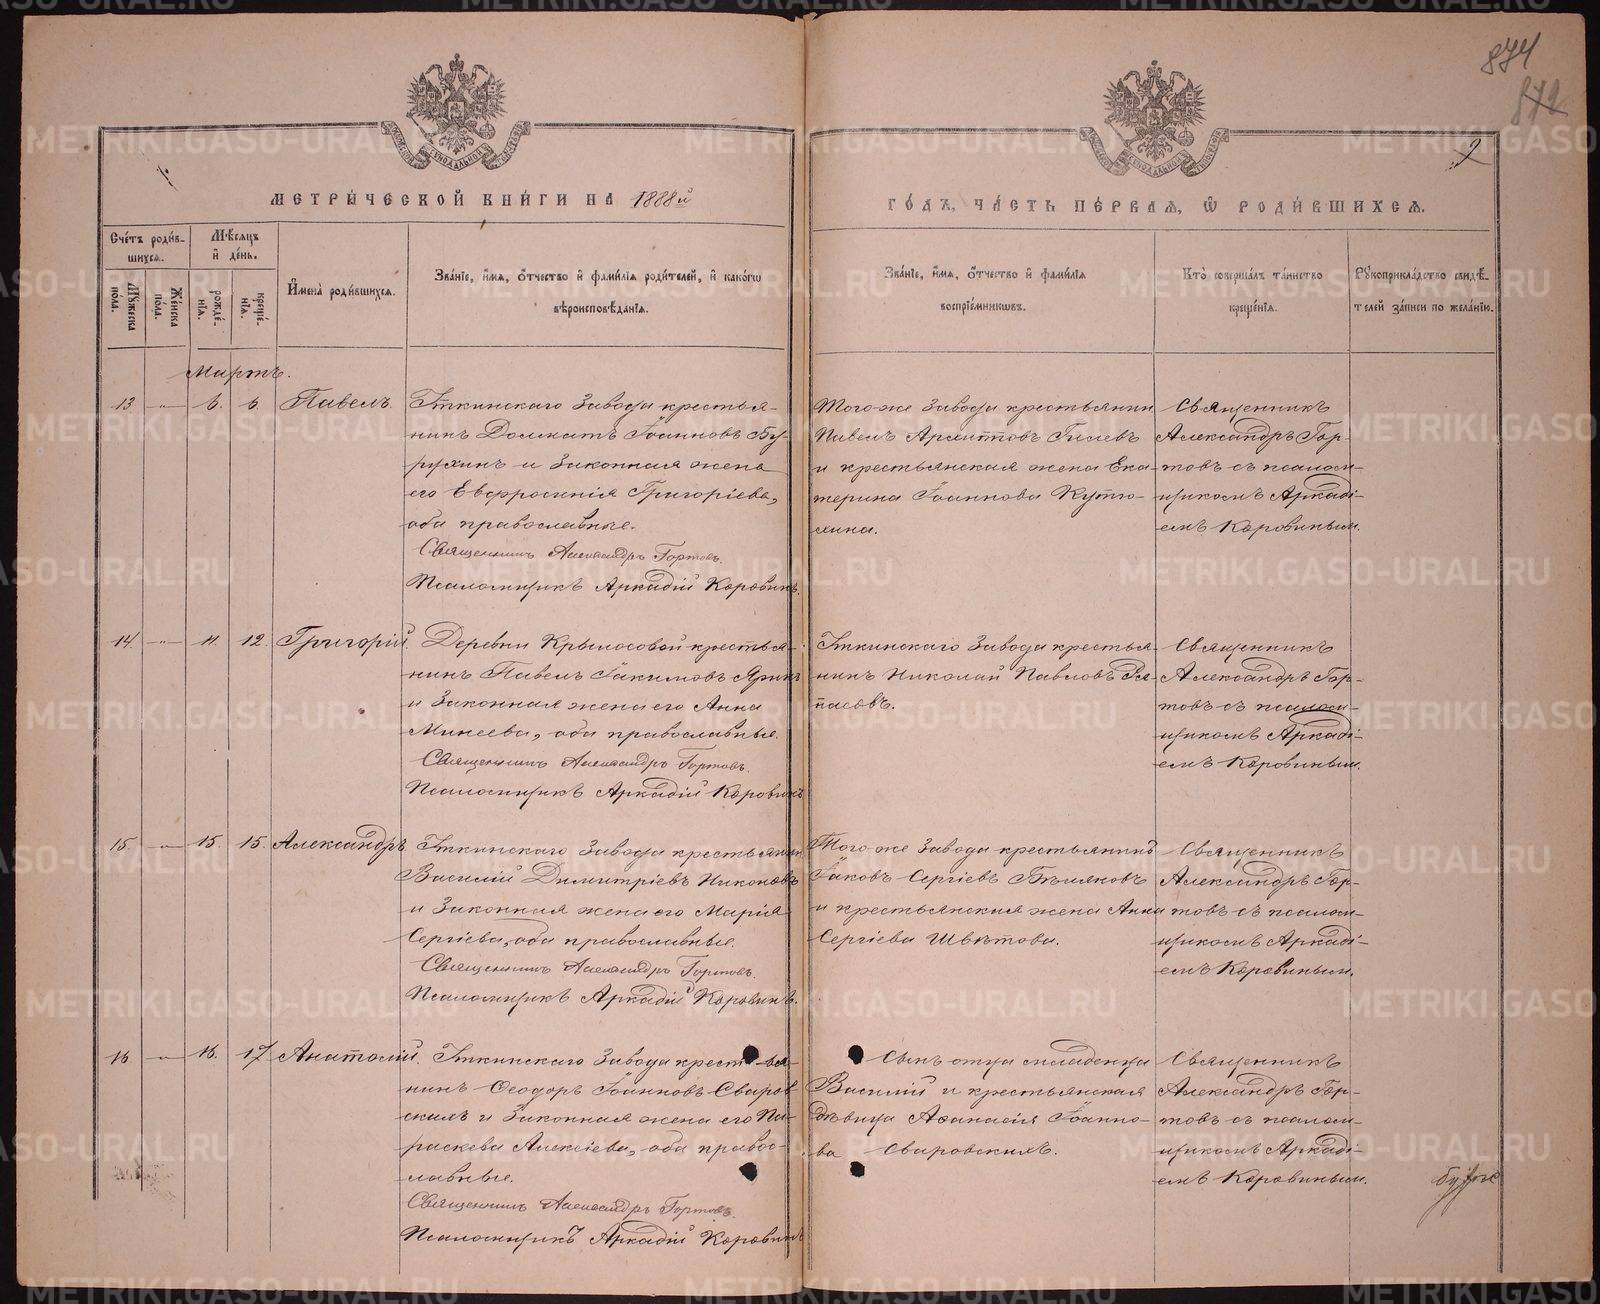 874
872
9
МЕТРИЧЕСКОЙ КНИГИ НА 1888й
ГОДЪ, ЧАСТЬ ПЕРВАЯ, Ѿ РОДИВШИХСЯ.
Счетъ родив-
шихся.
Мѣсяцъ
и день.
Мужеска
пола.
Женска
пола.
рожде-
нія.
креще-
нія.
Имена родившихся.
Званіе, имя, отчество и фамилія родителей, и какогѡ
вѣроисповѣданія.
Званіе, имя, отчество и фамилія
воспріемниковъ.
Кто совершалъ таинство
крещенія.
Рукоприкладство свидѣ-
телей записи по желанію.
Мартъ.
13 — 6. 6. Павелъ.
Уткинскаго Завода крестья-
нинъ Долматъ Іоанновъ Бу-
рухинъ и законная жена
его Евфросинія Григоріева,
оба православные.
Священникъ Александръ Гортовъ.
Псаломщикъ Аркадій Коровинъ.
Того-же Завода крестьянин
Павелъ Архиповъ Гилевъ
и крестьянская жена Ека-
терина Іоаннова Кутю-
хина.
Священникъ
Александръ Гор-
товъ съ псалом-
щикомъ Аркаді-
емъ Коровинымъ.
14. — 11. 12. Григорій.
Деревни Крылосовой крестья-
нинъ Павелъ Іакимовъ Яринъ
и законная жена его Анна
Минеева, оба православные.
Священникъ Александръ Гортовъ.
Псаломщикъ Аркадій Коровинъ
Уткинскаго Завода крестья-
нинъ Николай Павловъ
Священникъ
Александръ Гор-
товъ съ псалом-
щикомъ Аркаді-
емъ Коровинымъ.
15. — 15. 15. Александръ
Уткинскаго Завода крестьянин
Василій Димитріевъ Никоновъ
и законная жена его Марія
Сергіева, оба православные.
Священникъ Александръ Гортовъ.
Псаломщикъ Аркадій Коровинъ.
Того-же Завода крестьянинъ
Іаковъ Сергіевъ Бѣляковъ
и крестьянская жена Анна
Сергіева Швѣтова.
Священникъ
Александръ Гор-
товъ съ псалом-
щикомъ Аркаді-
емъ Коровинымъ.
16 — 16. 17 Анатолій.
Уткинскаго Завода крестья-
нинъ Ѳеодоръ Іоанновъ Сваров
скихъ и законная жена его Па-
раскева Алексіева, оба право-
славные.
Священникъ Александръ Гортовъ.
Псаломщикъ Аркадій Коровинъ
Сынъ отца младенца
Василій и крестьянская
дѣвица Аѳанасія Іоанно-
ва Сваровскихъ.
Священникъ
Александръ Гор-
товъ съ псалом-
щикомъ Аркаді-
емъ Коровинымъ.
METRIKI.GASO-URAL.RU